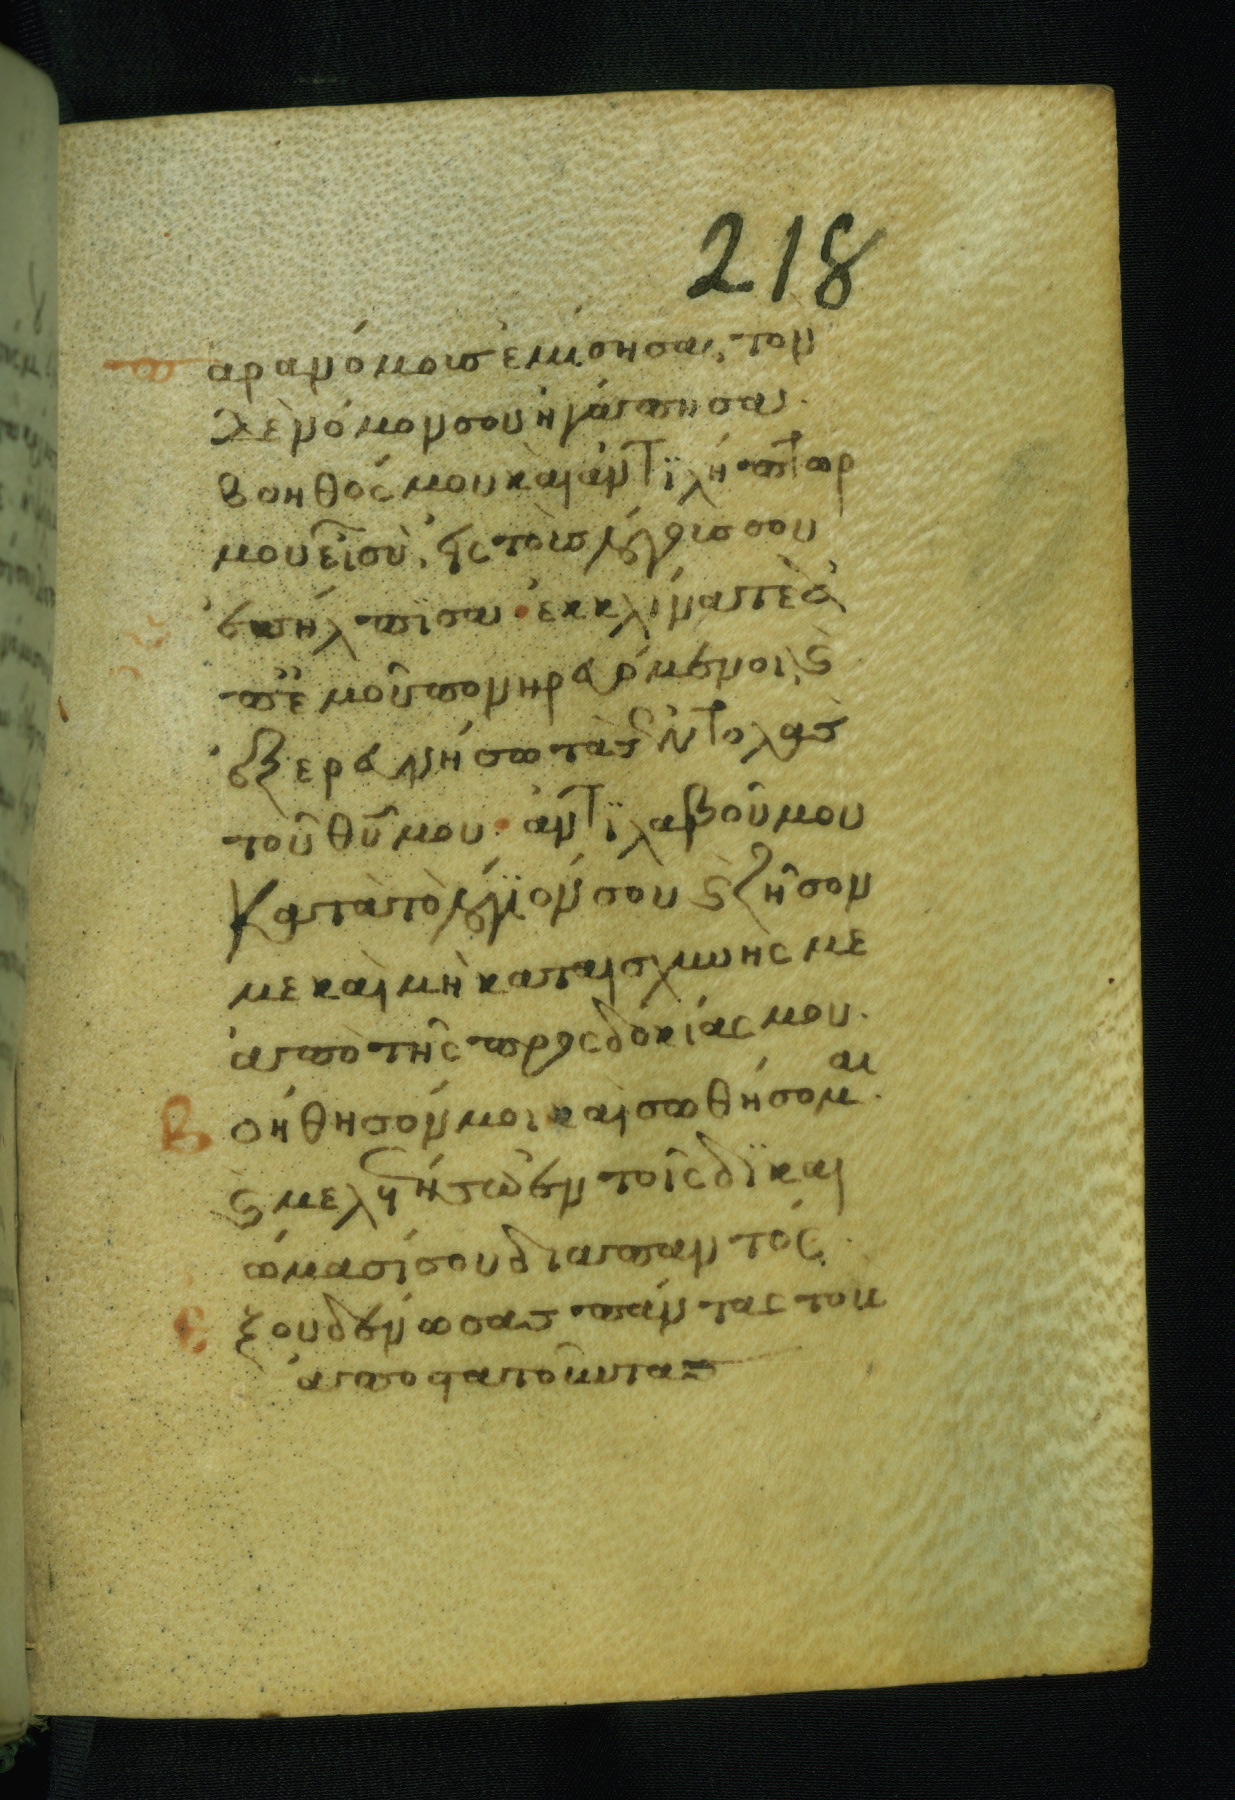 218
παρανόμους ἐμίσησα, τὸν
δὲ νόμον σου ἠγάπησα.
βοηθός μου καὶ ἀντϊλήπτωρ
μου εἶ σὺ, εἰς τοὺς λόγους σου
ἐπήλπισα. ἐκκλίνατε ἀ
π' ἐμοῦ πονηρευόμενοι, ϗ
ἐξερευνήσω τὰς ἐντολὰς
τοῦ θῦ μου. ἀντϊλαβοῦ μου
κατὰ τὸ λόγϊόν σου ϗ ζῆσον
με καὶ μὴ καταισχύνης με
ἀπὸ τῆς προσδοκίας μου.
βοήθησόν μοι καὶ σωθήσομαι.
ϗ μελετήσω ἐν τοῖς δϊκαι
ώμασί σου διαπαντός.
ἐξουδένωσας πάντας τοὺς
ἀποστατοῦντας